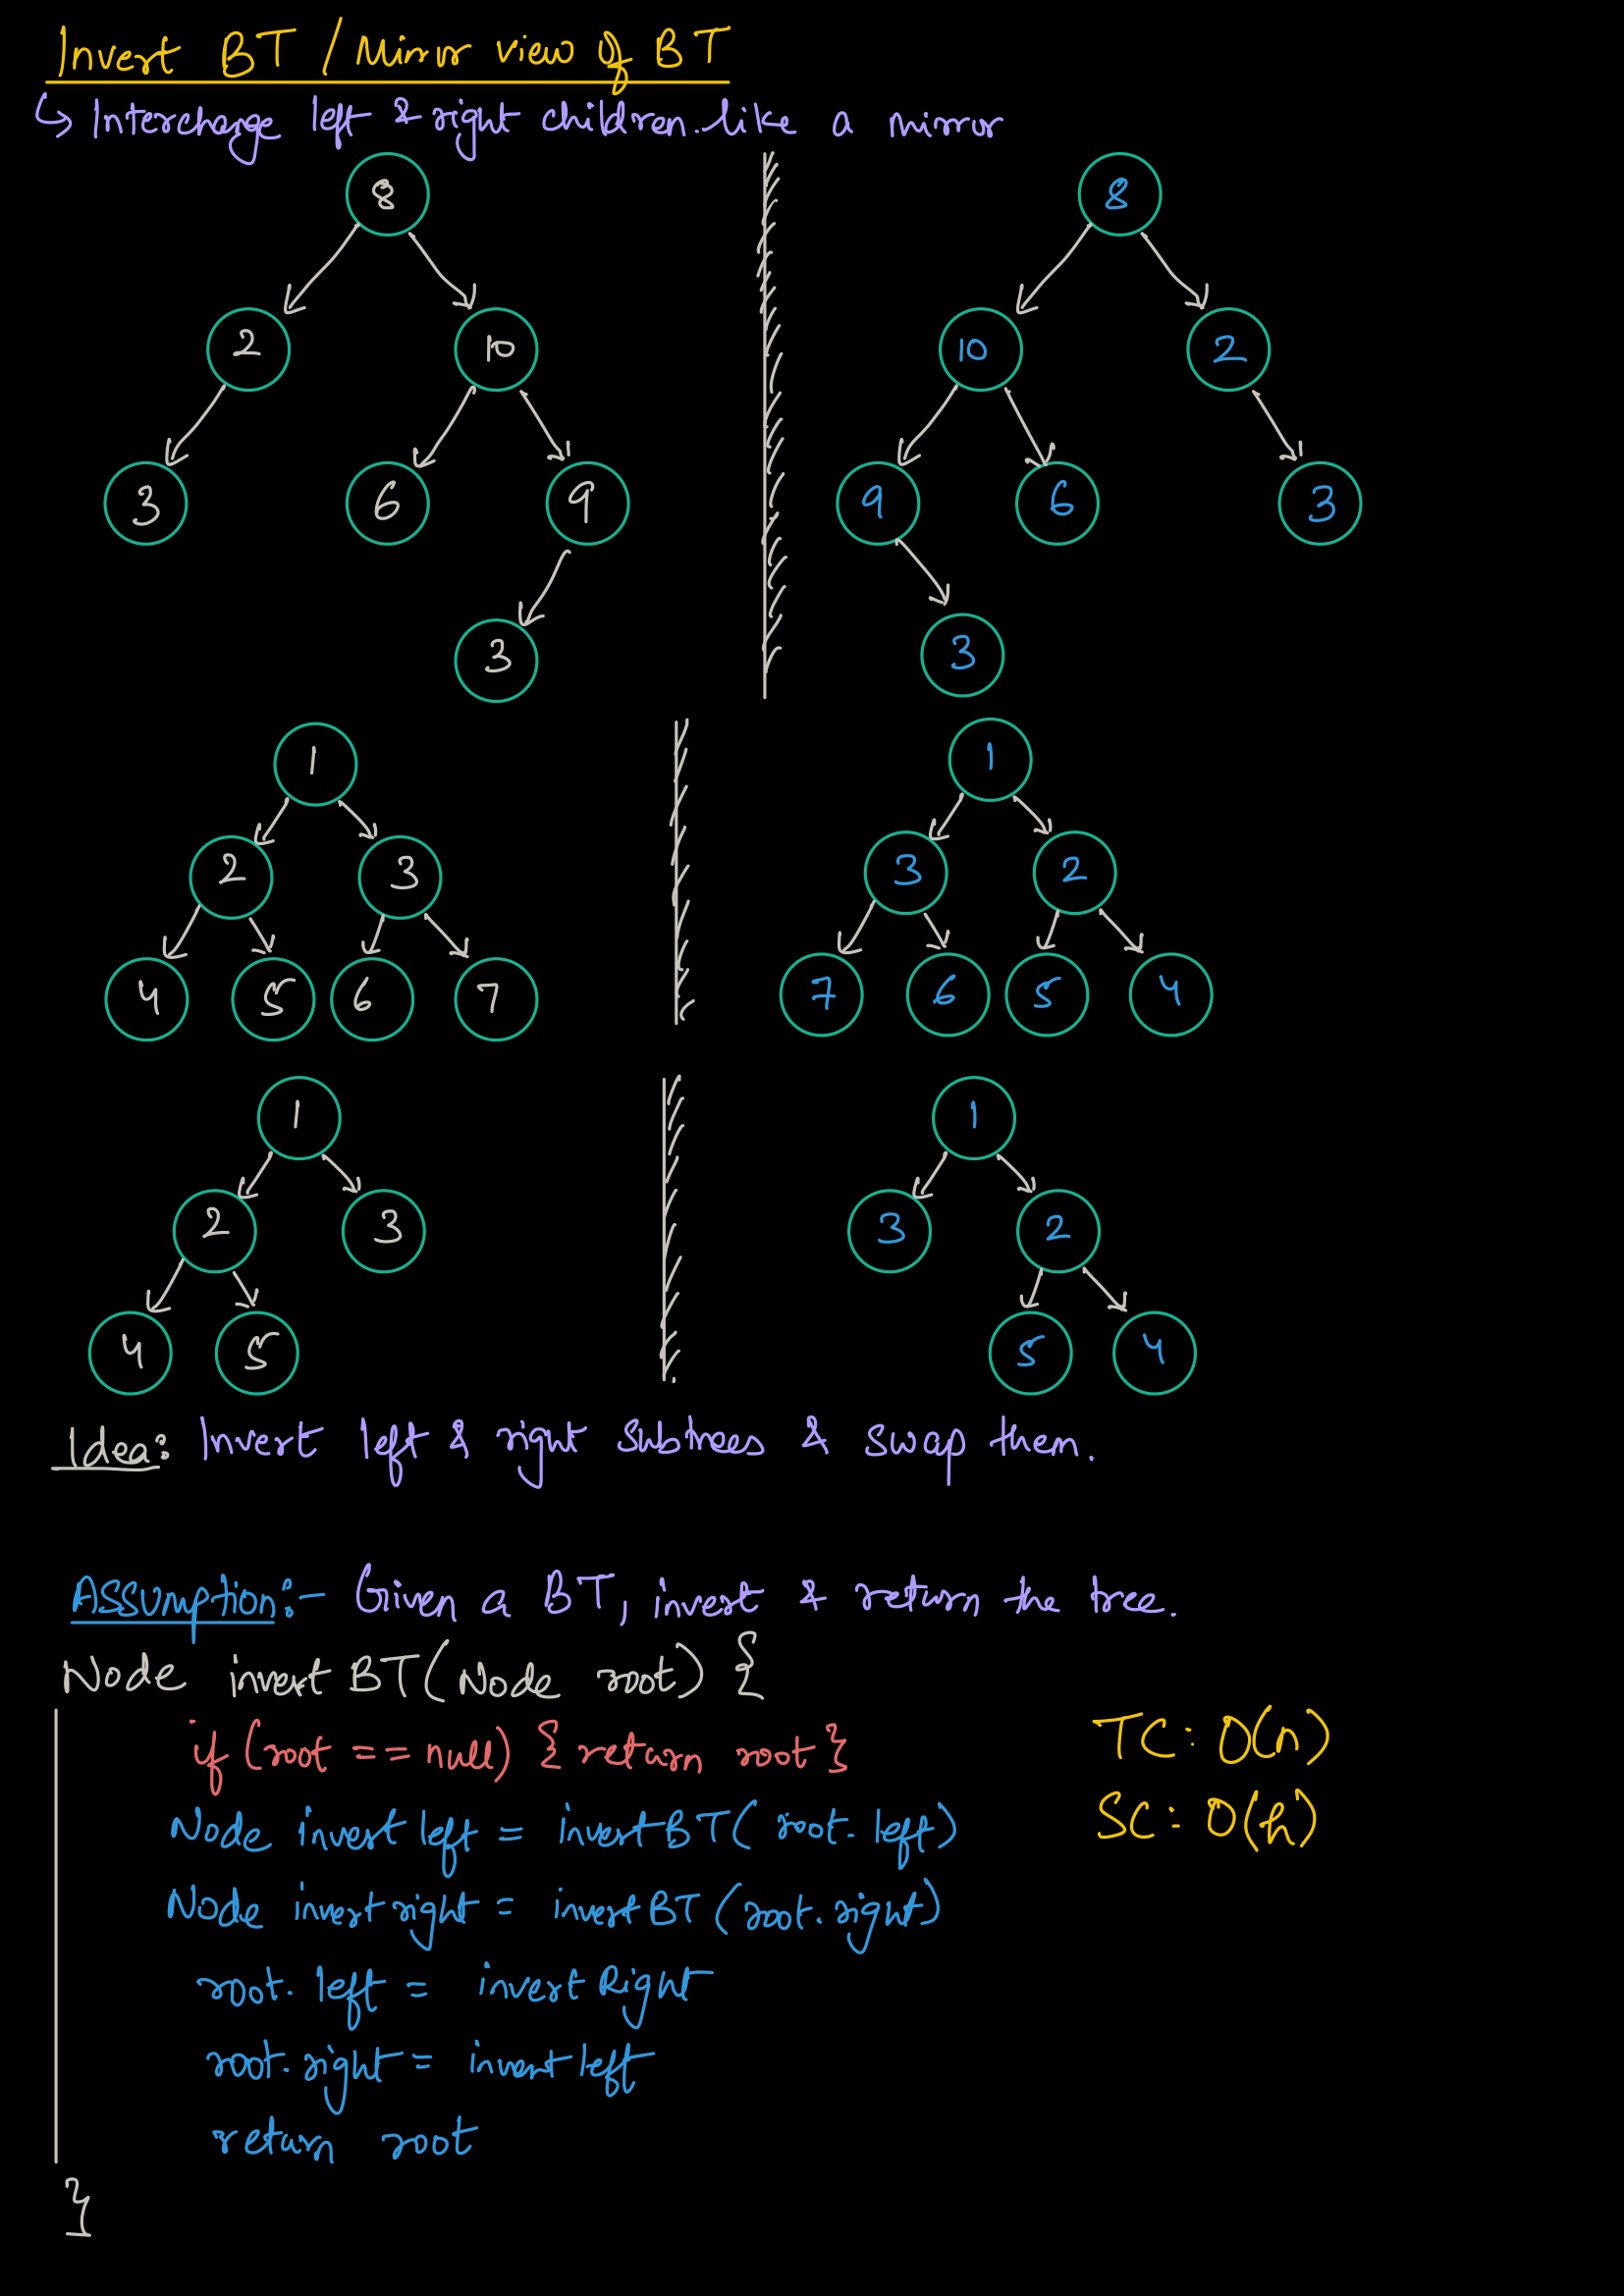 Invert BT / Mirror view of BT
↳ Interchange left & right children. like a mirror
8 8
2 10 10 2
3 6 9 9 6 3
3 3
1 1
2 3 3 2
4 5 6 7 7 6 5 4
1 1
2 3 3 2
4 5 5 4
Idea: Invert left & right subtrees & swap them.
Assumption:- Given a BT, invert & return the tree.
Node invertBT(Node root) {
if (root == null) { return root }
TC: O(n)
Node invertleft = invertBT( root. left)
SC: O(h)
Node invertright = invertBT (root. right)
root. left = invertRight
root. right = invertleft
return root
}